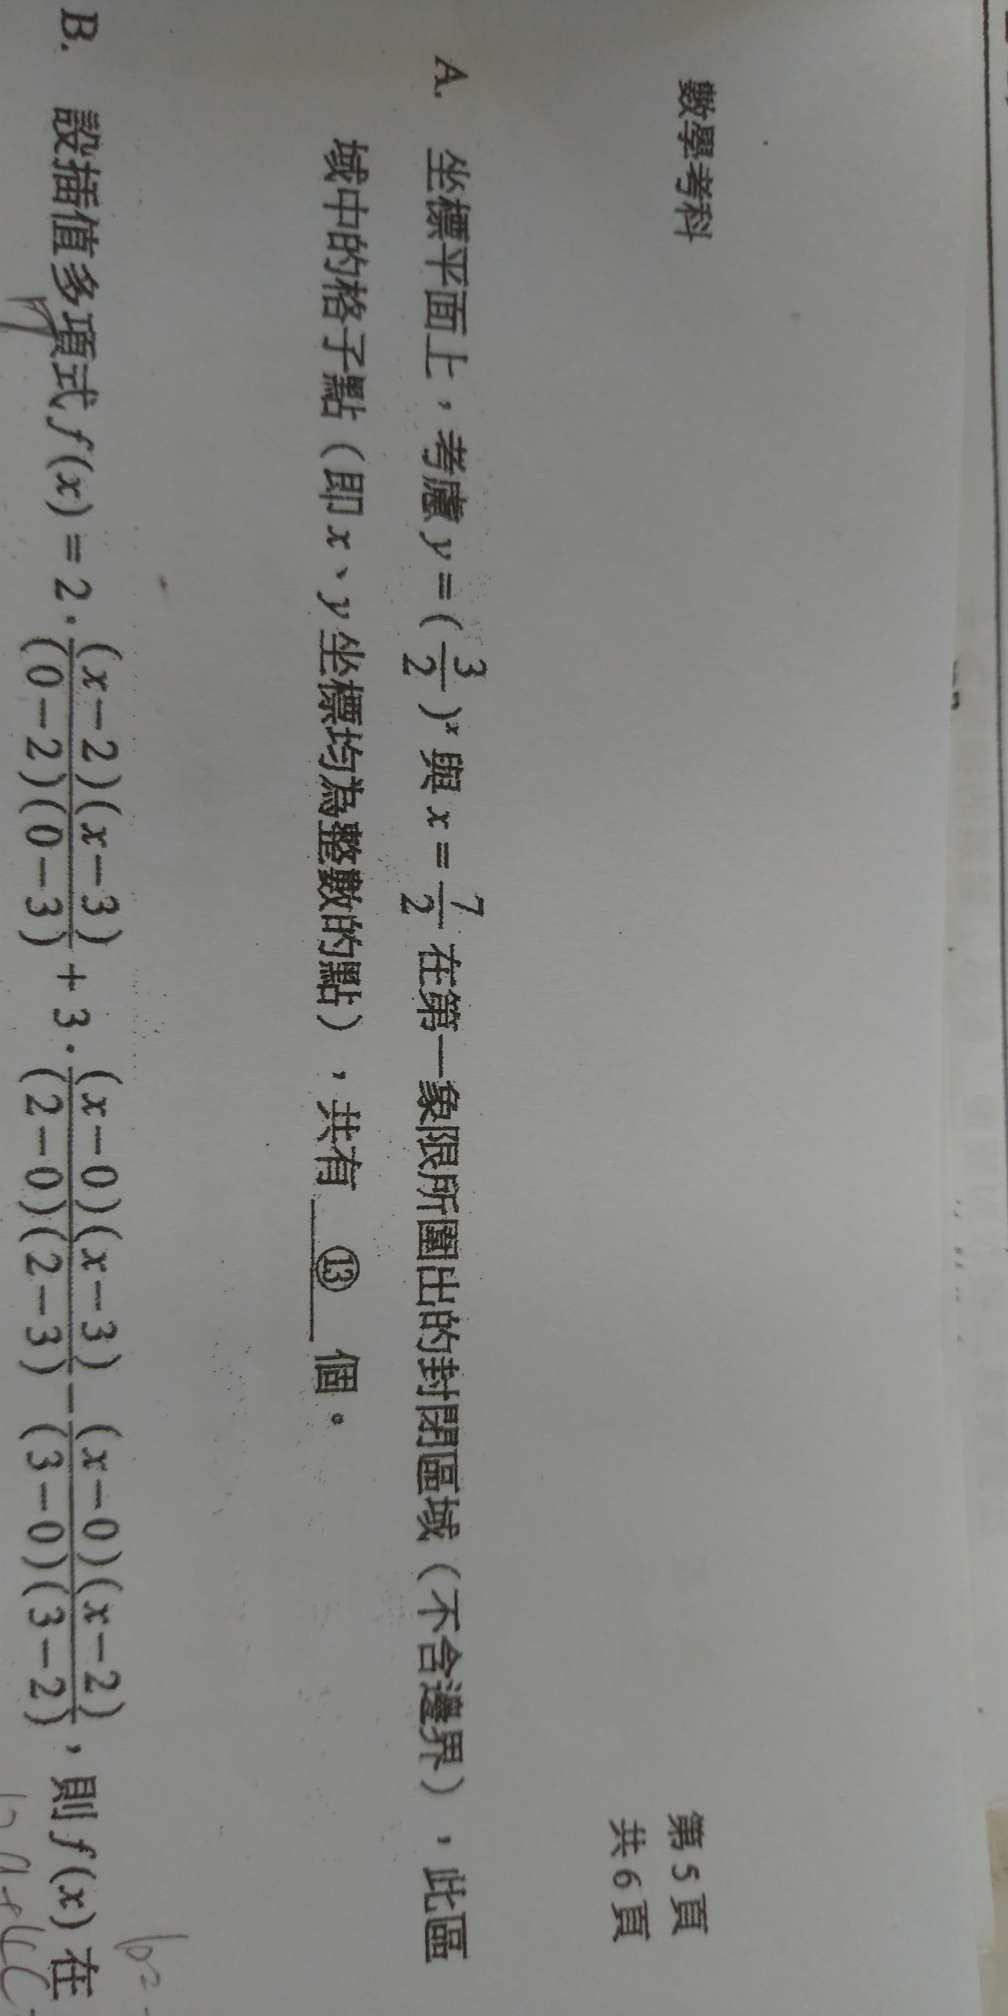 數學考科
第 5 頁
共 6 頁
A. 坐標平面上，考慮 y = (3/2)^x 與 x = 7/2 在第一象限所圍出的封閉區域（不含邊界），此區
域中的格子點（即 x、y 坐標均為整數的點），共有 ⑬ 個。
B. 設插值多項式 f(x) = 2·(x−2)(x−3)/(0−2)(0−3) + 3·(x−0)(x−3)/(2−0)(2−3) − (x−0)(x−2)/(3−0)(3−2)，則 f(x) 在
b=